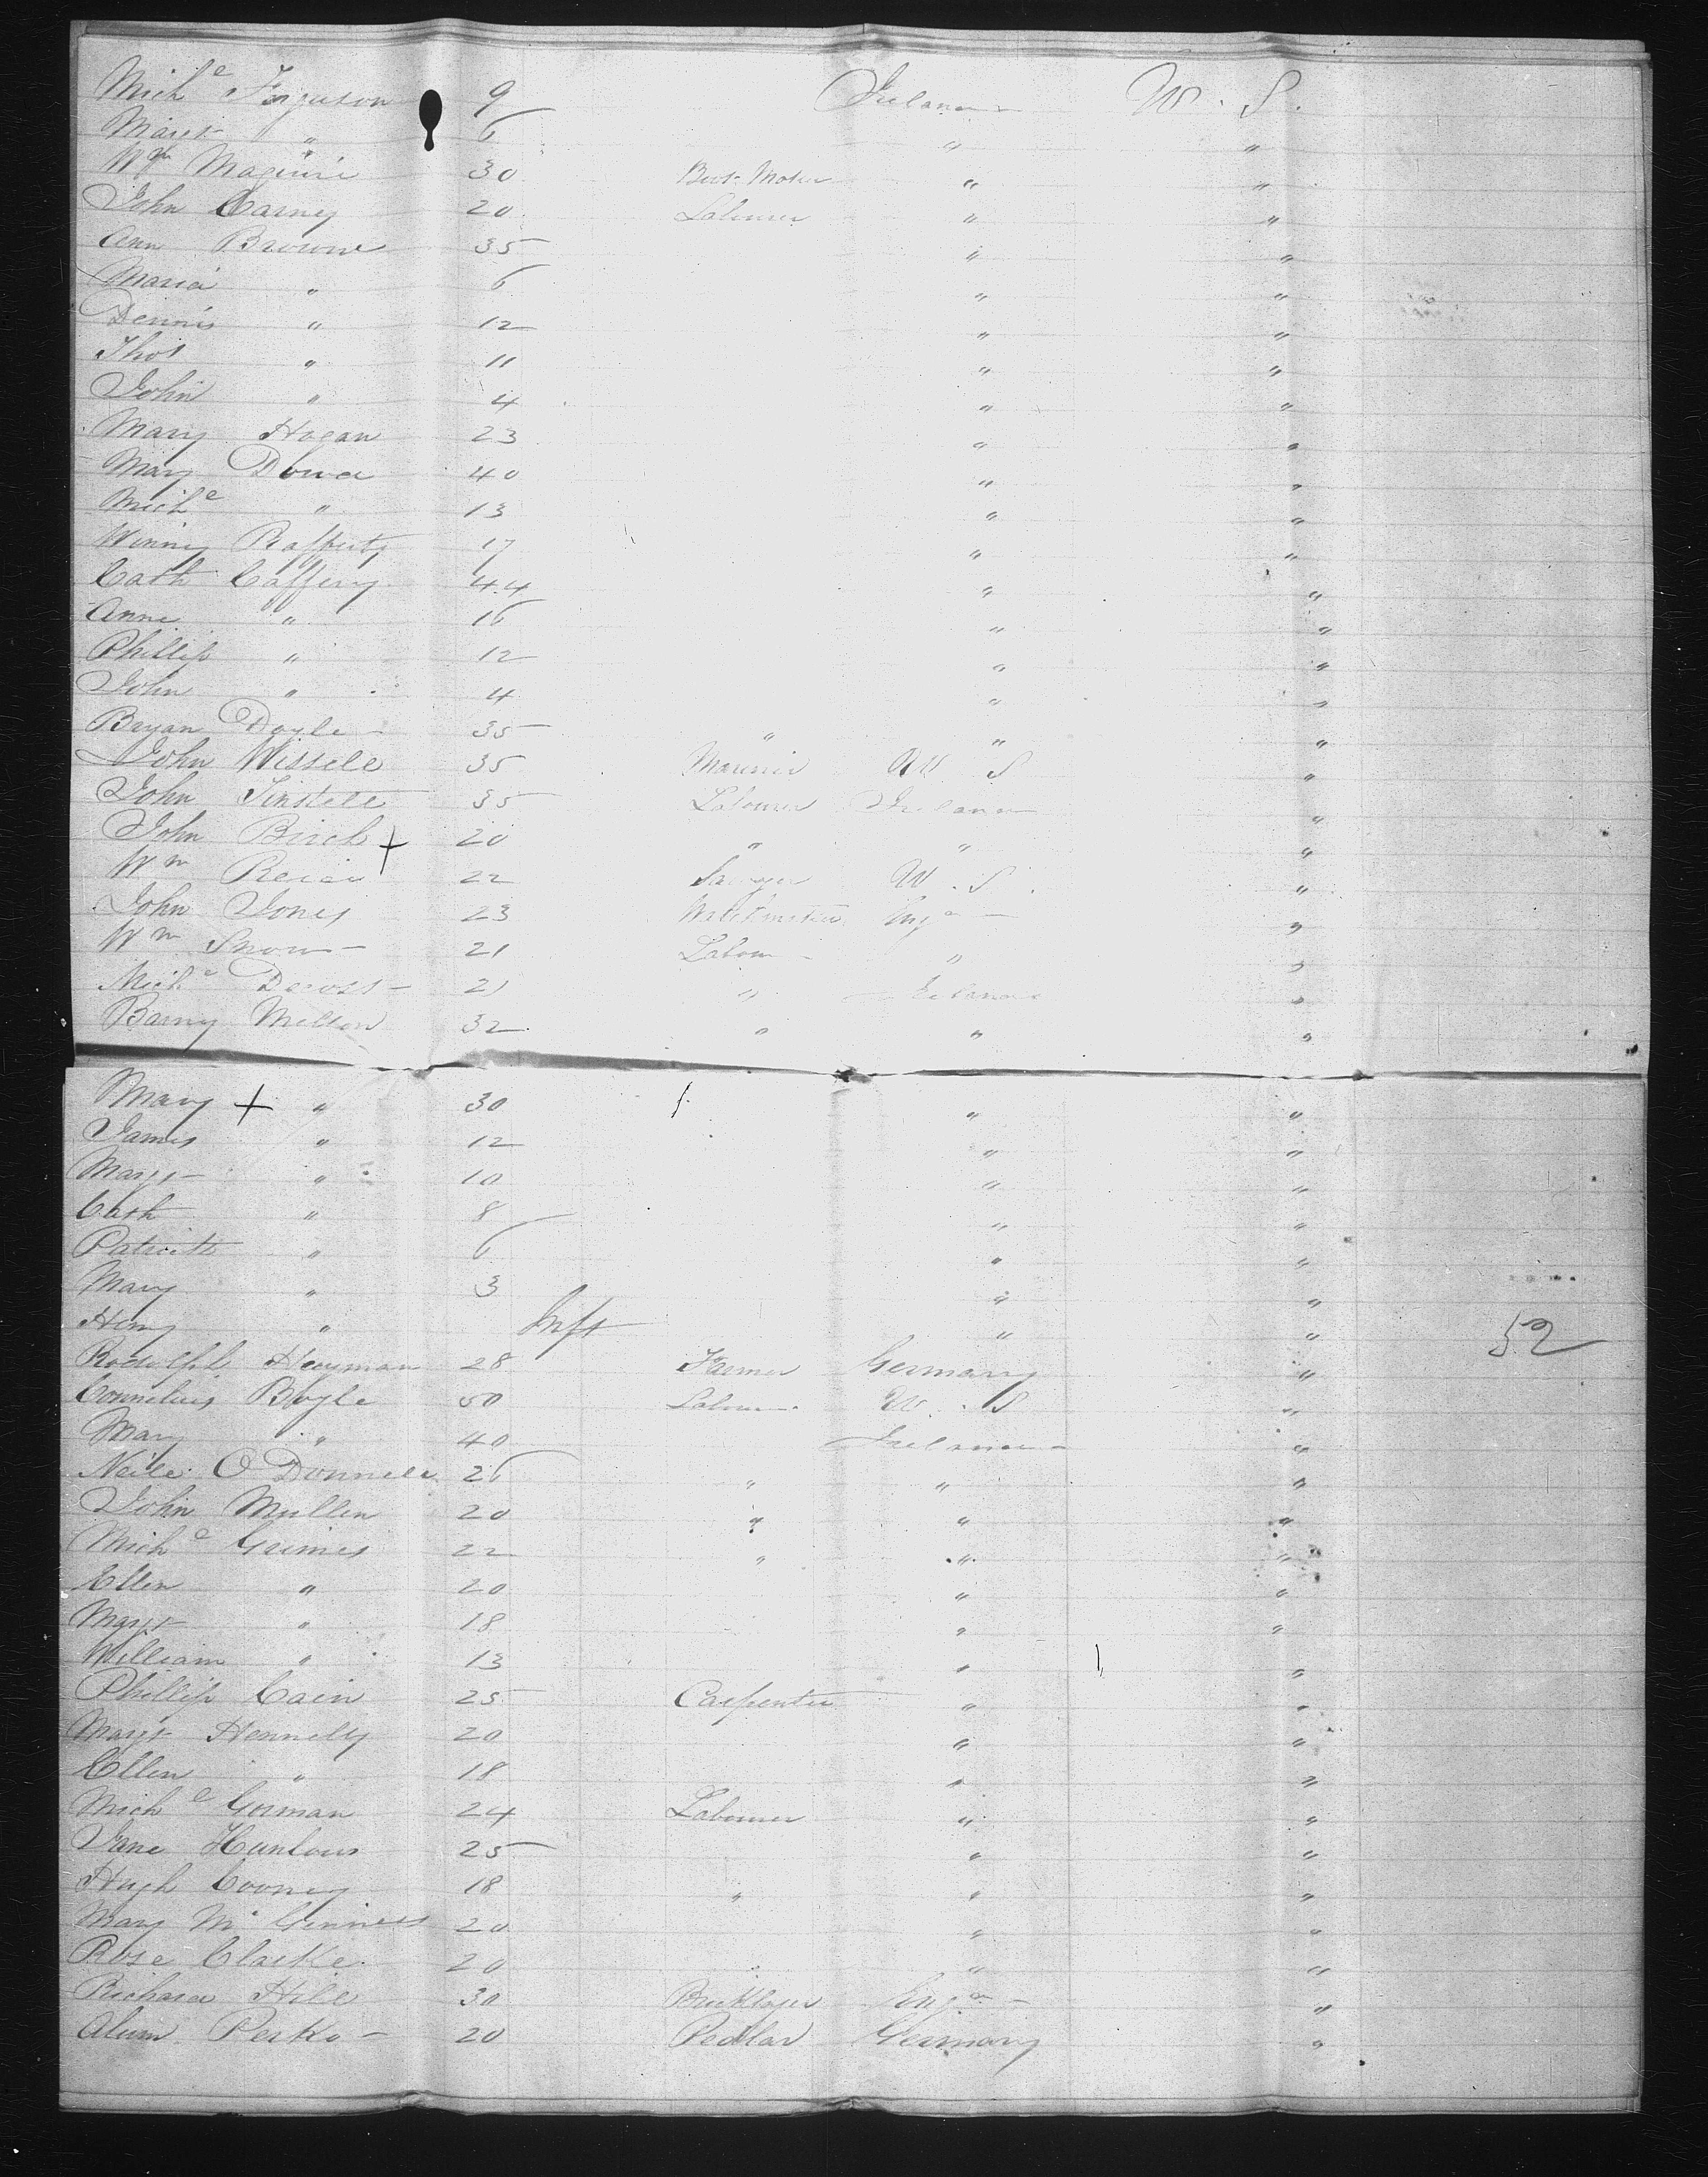 Mich.l Ferguson 9 Ireland U. S.
Margt " 6 " "
Wm Maguire 30 Boot Maker " "
John Carney 20 Labourer " "
Ann Browne 35 " "
Maria " 6 " "
Dennis " 12 " "
Thos " 11 " "
John " 4 " "
Mary Hogan 23 " "
Mary Dowd 40 " "
Michl " 13 " "
Winny Rafferty 17 " "
Cath Caffery 44 " "
Anne " 16 " "
Phillip " 12 " "
John " 4 " "
Bryan Doyle 35 " " "
John Wissell 35 Mariner U. S "
John 35 Labourer Ireland "
John Birch + 20 " " "
Wm 22 Sawyer U. S. "
John Jones 23 Engd "
Wm Snow 21 Labour " "
Michl 21 " Ireland "
Barny Mellon 32 " " "
Mary + " 30 " "
James " 12 " "
Margt " 10 " "
Cath " 8 " "
Patrick " 6 " "
Mary " 3 " "
Henry " Inft " " 52
Rodolph Heyman 28 Farmer Germany "
Cornelius Boyle 50 Labour U. S "
Mary " 40 Ireland "
Neile O Donnell 26 " " "
John Mullen 20 " " "
Michl Grimes 22 " " "
Ellen " 20 " "
Margt " 18 " "
William " 13 " "
Phillip Cain 25 Carpenter " "
Margt Hennelly 20 " "
Ellen " 18 " "
Michl Gorman 24 Labourer " "
Jane Hanlown 25 " "
Hugh Cooney 18 " " "
Mary McGinness 20 " "
Rose Clarke 20 " "
Richard Hill 30 Bricklayer Engd "
20 Pedlar Germany "